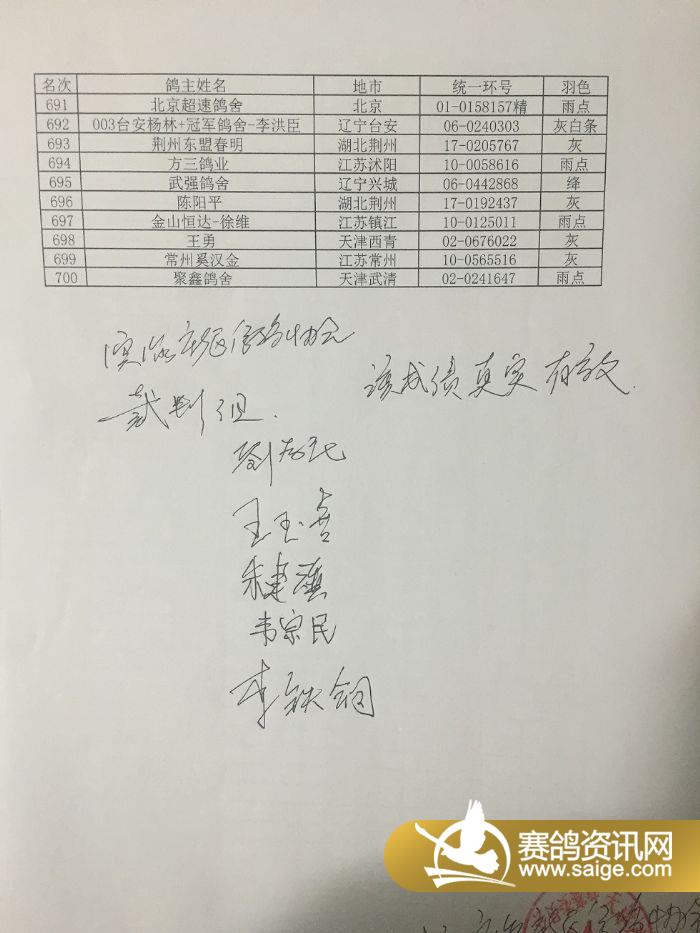 名次 鸽主姓名 地市 统一环号 羽色
691 北京超速鸽舍 北京 01-0158157精 雨点
692 003台安杨林+冠军鸽舍-李洪臣 辽宁台安 06-0240303 灰白条
693 荆州东盟春明 湖北荆州 17-0205767 灰
694 方三鸽业 江苏沭阳 10-0058616 雨点
695 武强鸽舍 辽宁兴城 06-0442868 绛
696 陈阳平 湖北荆州 17-0192437 灰
697 金山恒达-徐维 江苏镇江 10-0125011 雨点
698 王勇 天津西青 02-0676022 灰
699 常州奚汉金 江苏常州 10-0565516 灰
700 聚鑫鸽舍 天津武清 02-0241647 雨点
信鸽协会
该成绩真实有效.
裁判组.
王玉喜
韦宗民
李铁钢
赛鸽资讯网
www.saige.com
信鸽协会